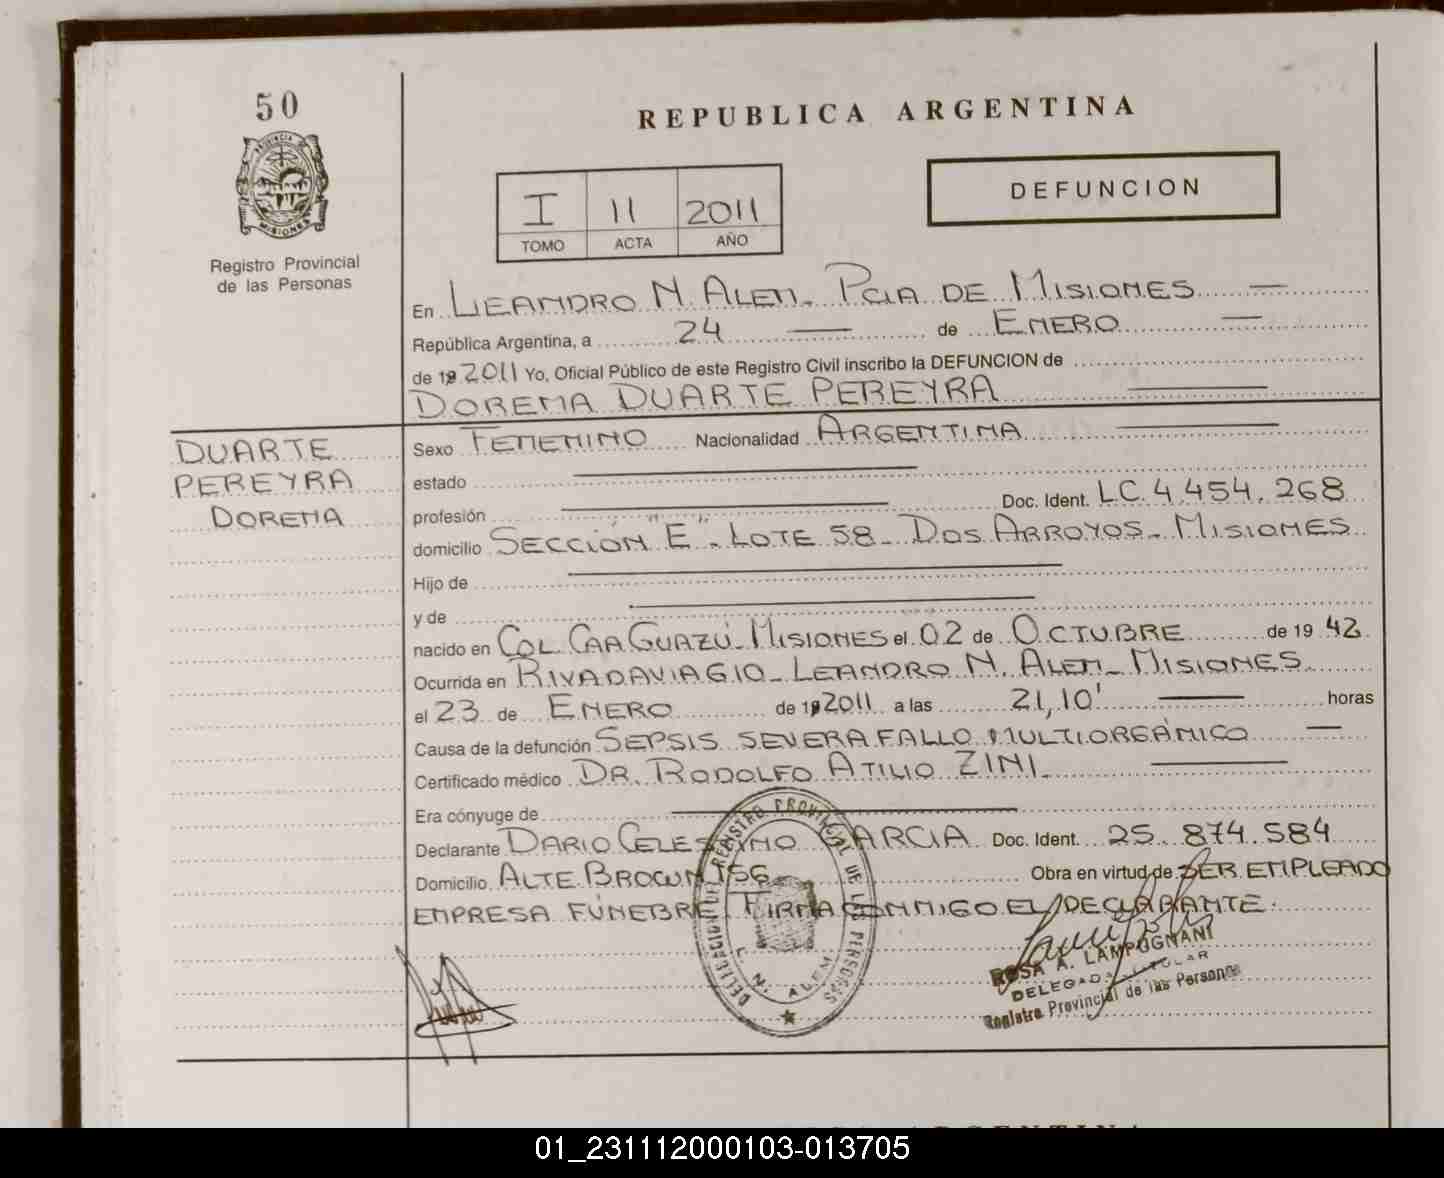 50
PROVINCIA DE
MISIONES
Registro Provincial
de las Personas
REPUBLICA ARGENTINA
I 11 2011
TOMO ACTA AÑO
DEFUNCION
En LEANDRO N. ALEM. PCIA DE MISIONES
República Argentina, a 24 de ENERO
de 19 2011 Yo, Oficial Público de este Registro Civil inscribo la DEFUNCION de
DOREMA DUARTE PEREYRA
DUARTE
PEREYRA
DOREMA
Sexo FEMENINO Nacionalidad ARGENTINA
estado
profesión Doc. Ident. LC. 4.454.268
domicilio SECCIÓN "E". LOTE 58 - DOS ARROYOS - MISIONES
Hijo de
y de
nacido en COL. CAA GUAZÚ - MISIONES el 02 de OCTUBRE de 19 42
Ocurrida en RIVADAVIA 610 - LEANDRO N. ALEM - MISIONES
el 23 de ENERO de 19 2011 a las 21,10' horas
Causa de la defunción SEPSIS SEVERA FALLO MULTIORGÁNICO
Certificado médico DR. RODOLFO ATILIO ZINI
Era cónyuge de
Declarante DARIO CELESTINO GARCIA Doc. Ident. 25.874.584
Domicilio ALTE BROWN 156 Obra en virtud de SER EMPLEADO
EMPRESA FÚNEBRE. FIRMA CONMIGO EL DECLARANTE.
DELEGACION DEL REGISTRO PROVINCIAL DE LAS PERSONAS
L. N. ALEM
ROSA A. LAMPUGNANI
DELEGADA TITULAR
Registro Provincial de las Personas
01_231112000103-013705